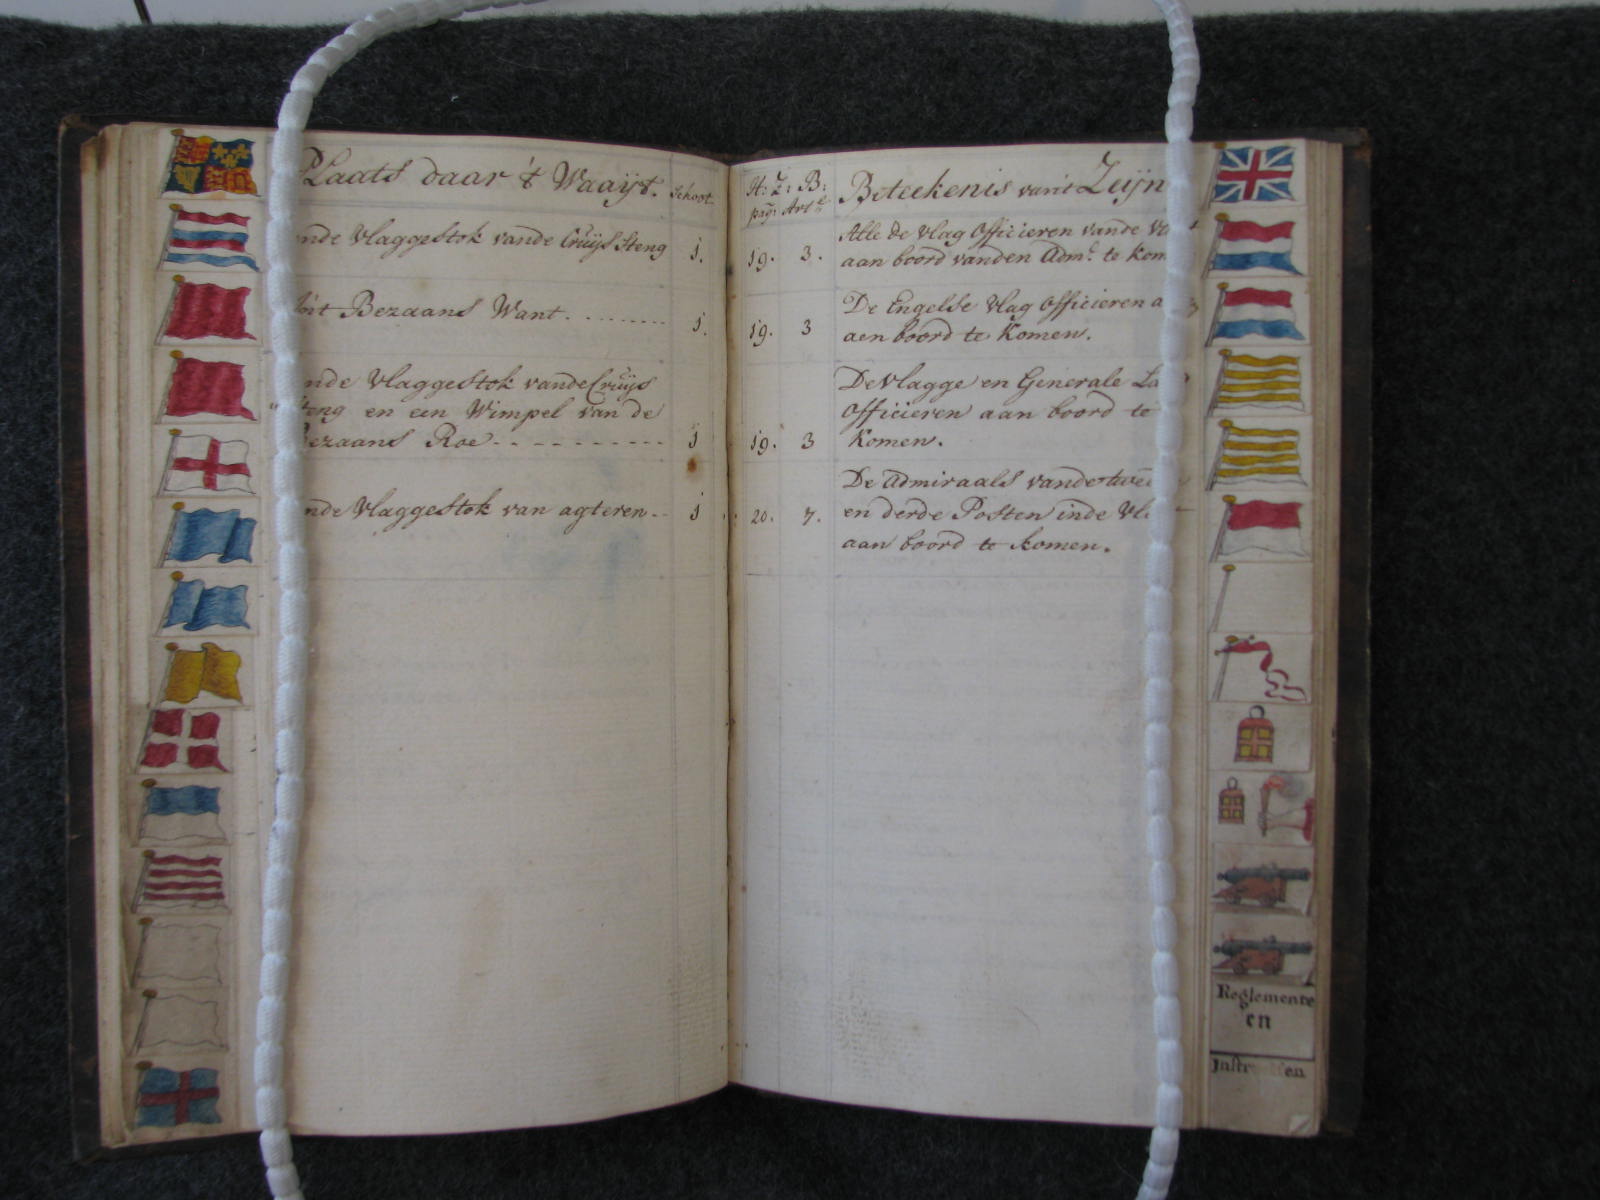 Plaats daar 't Waaÿt. Schoot.
nde vlaggestok vande Cruÿs Steng 1.
int Bezaans Want. 1.
nde vlaggestok vande Cruÿs
Steng en een Wimpel van de
Bezaans Roe 1
nde vlaggestok van agteren 1
H: Z: B: Beteekenis van't Zeijn
pag: Artˡᵉ
Alle de vlag Officieren vande
19. 3. aan boord vanden Admˡ te kom
De Engelse vlag officieren a
19. 3 aen boord te Komen.
De vlagge en Generale
Officieren aan boord te
19. 3 Komen.
De Admiraals vande twee
20. 7. en derde Posten inde
aan boord te komen.
Reglemente
en